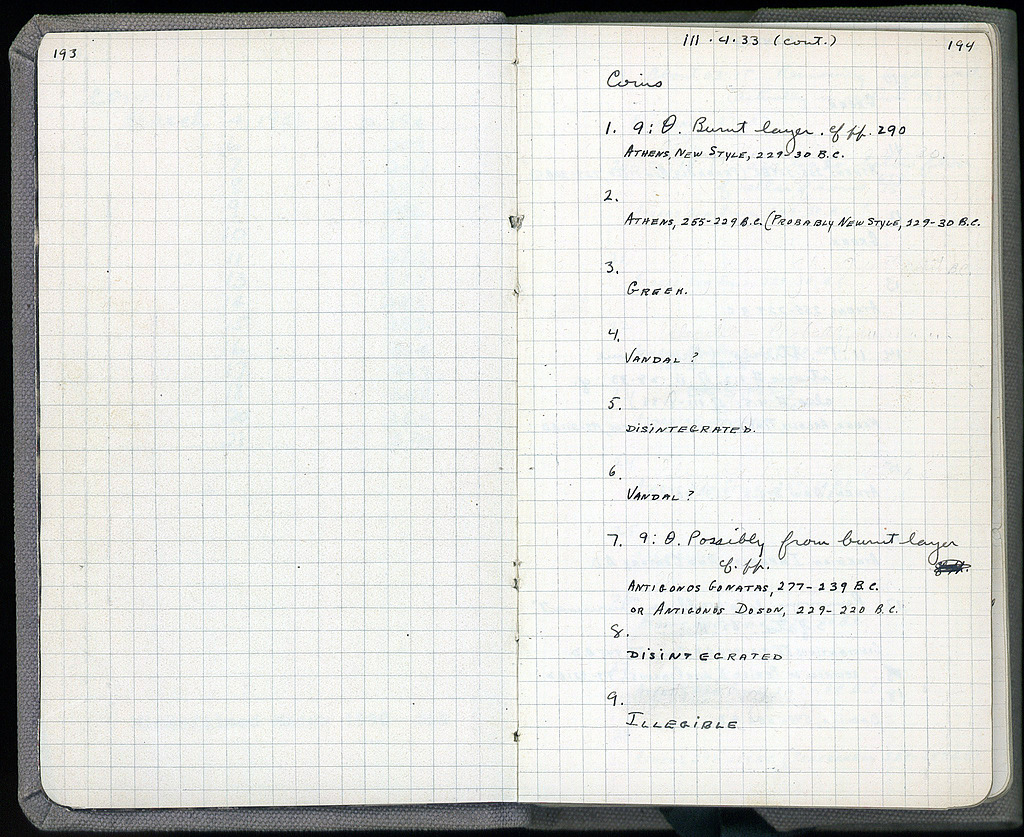 193
III·4·33 (cont.)
194
Coins
1. 9:Θ. Burnt layer. cf pp. 290
ATHENS, NEW STYLE, 229-30 B.C.
2.
ATHENS, 255-229 B.C. (PROBABLY NEW STYLE, 229-30 B.C.
3.
GREEK.
4.
VANDAL?
5.
DISINTEGRATED.
6.
VANDAL?
7. 9:Θ. Possibly from burnt layer
cf. pp.
ANTIGONOS GONATAS, 277-239 B.C.
OR ANTIGONOS DOSON, 229-220 B.C.
8.
DISINTEGRATED
9.
ILLEGIBLE